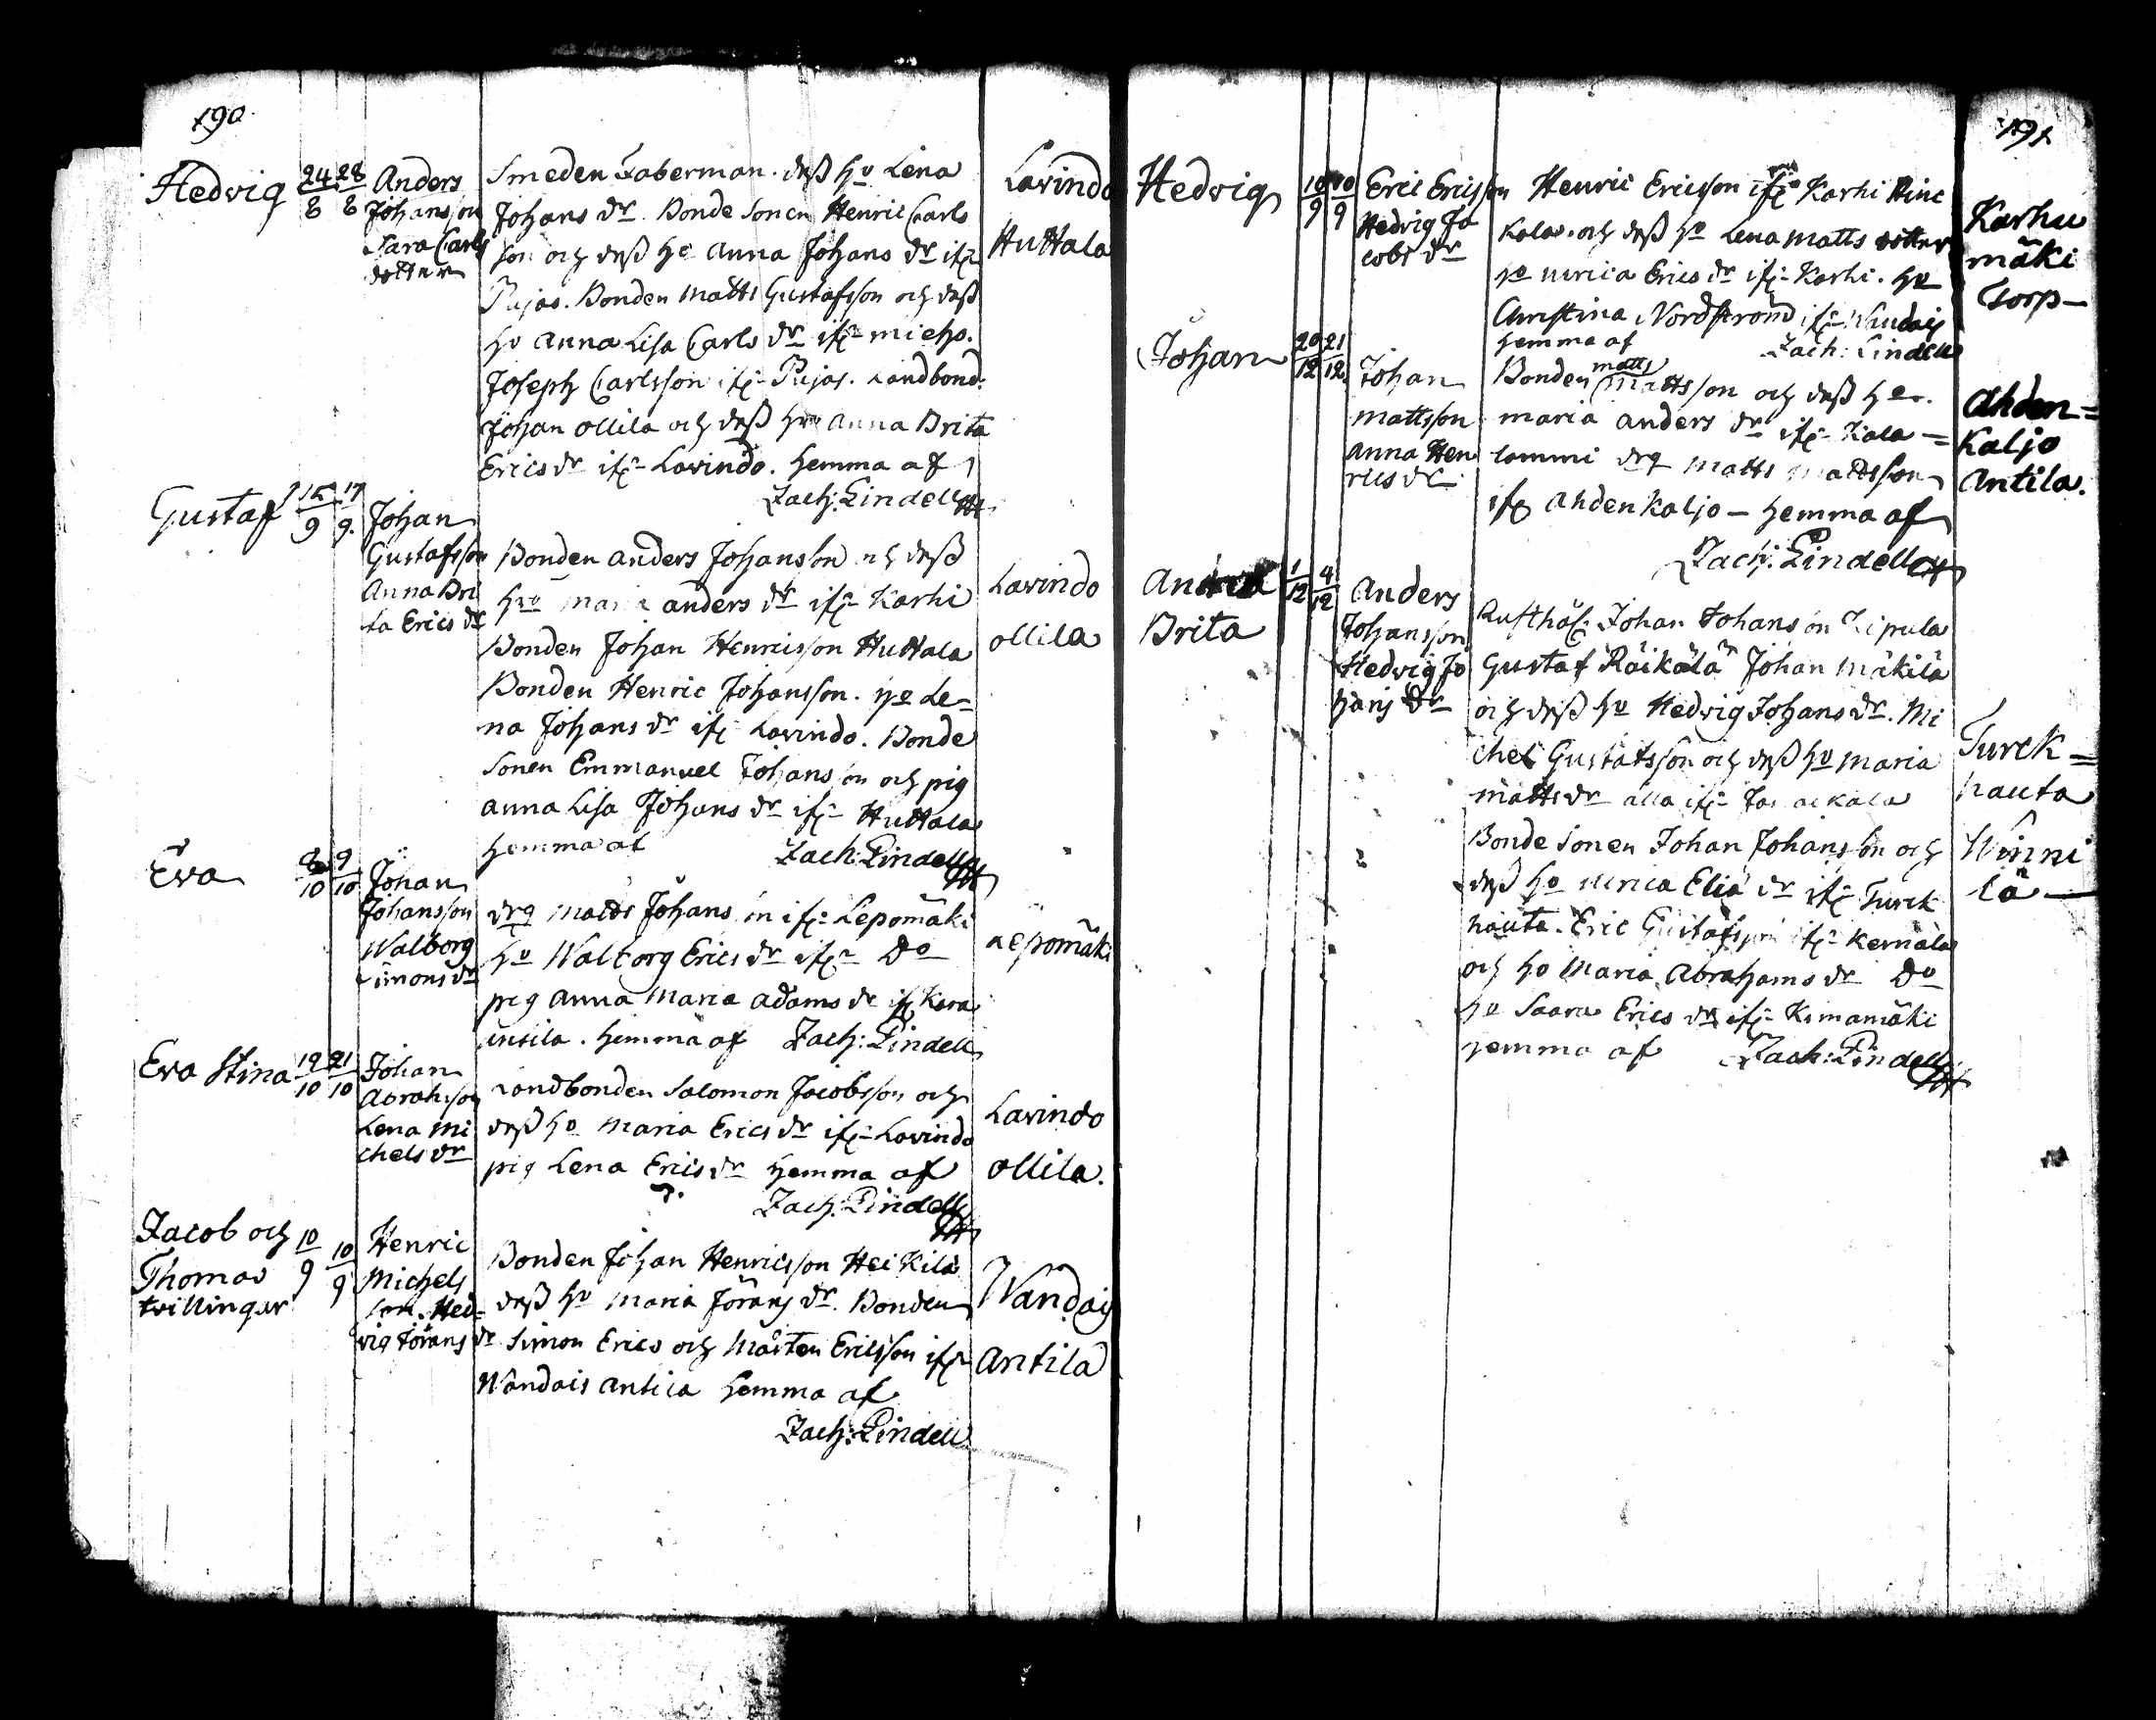 190.
Hedvig 24/8 28/8
Anders
Johansson
Sara Carls
dotter
Smeden Faberman. deß ho Lena
Johans dr. Bonde Sonen Henric Carls
son och deß ho Anna Johans dr ifr
Pujas. Bonden Matts Gustafsson och deß
ho Anna Lisa Carls dr ifr
Joseph Carlsson ifr Pujas. Landbond:
Johan Ollila och deß ho Anna Brita
Erics dr ifr Lavindo. hemma af
Zach: Lindell
Lavindo
Huttala
Gustaf 9 17/9.
Johan
Gustafsson
Anna Bri
ta Erics dr
Bonden Anders Johansson och deß
ho Maria Anders dr ifr Karhi
Bonden Johan Henricsson Huttala
Bonden Henric Johansson. ho Le=
na Johans dr ifr Lavindo. Bonde
Sonen Emmanuel Johansson och pig
Anna Lisa Johans dr ifr Huttala
hemma af Zach: Lindell
Lavindo
Ollila
Eva 8/10 9/10
Johan
Johansson
Walborg
Simons dr
drg Matts Johansson ifr Lepomäki
ho Walborg Erics dr ifr Do
pig Anna Maria Adams dr ifr Kara
Untila. hemma af Zach: Lindell
Lepomäki
Eva Stina 19/10 21/10
Johan
Abrahsson
Lena Mi
chels dr
Landbonden Salomon Jacobsson och
deß ho Maria Erics dr ifr Lavindo
pig Lena Erics dr hemma af
Zach: Lindell
Lavindo
Ollila.
Jacob och 10/9 10/9
Thomas
tvillingar
Henric
Michels
son. Hed=
vig Jörans dr
Bonden Johan Henricsson Heikilä
deß ho Maria Jörans dr. Bonden
Simon Erics och Mårten Ericsson ifr
Wandais Antila hemma af
Zach: Lindell
Wandais
Antila
191
Hedvig 10/9 10/9
Eric Ericsson
Hedvig Ja
cobs dr
Henric Ericsson ifr Karhi Hinc
kala. och deß ho Lena Matts dotter
ho Ulrica Erics dr ifr Karhi. ho
Christina Nordström ifr Wandais
hemma af Zach: Lindell
Karhu
mäki
Torp—
Johan 20/12 21/12.
Johan
Mattsson
Anna Hen
rics dr
Bonden Matts Mattsson och deß ho
Maria Anders dr ifr Kala=
lammi drg Matts Mattsson
ifr Ahdenkaljo — hemma af
Zach: Lindell
Ahden=
Kaljo
Antila.
Anna 1/12 4/12
Brita
Anders
Johansson
Hedvig Jo
hans dr
Rusthål: Johan Johansson
Gustaf Räikälä Johan Mäkilä
och deß ho Hedvig Johans dr. Mi
chel Gustafsson och deß ho Maria
Matts dr alla ifr
Bonde Sonen Johan Johansson och
deß ho Ulrica Elia dr ifr Turck
hauta. Eric Gustafsson ifr Kernala
och ho Maria Abrahams dr Do
ho Saara Erics dr ifr Kimamäki
hemma af Zach: Lindell
Turck=
hauta
Winni
lä —